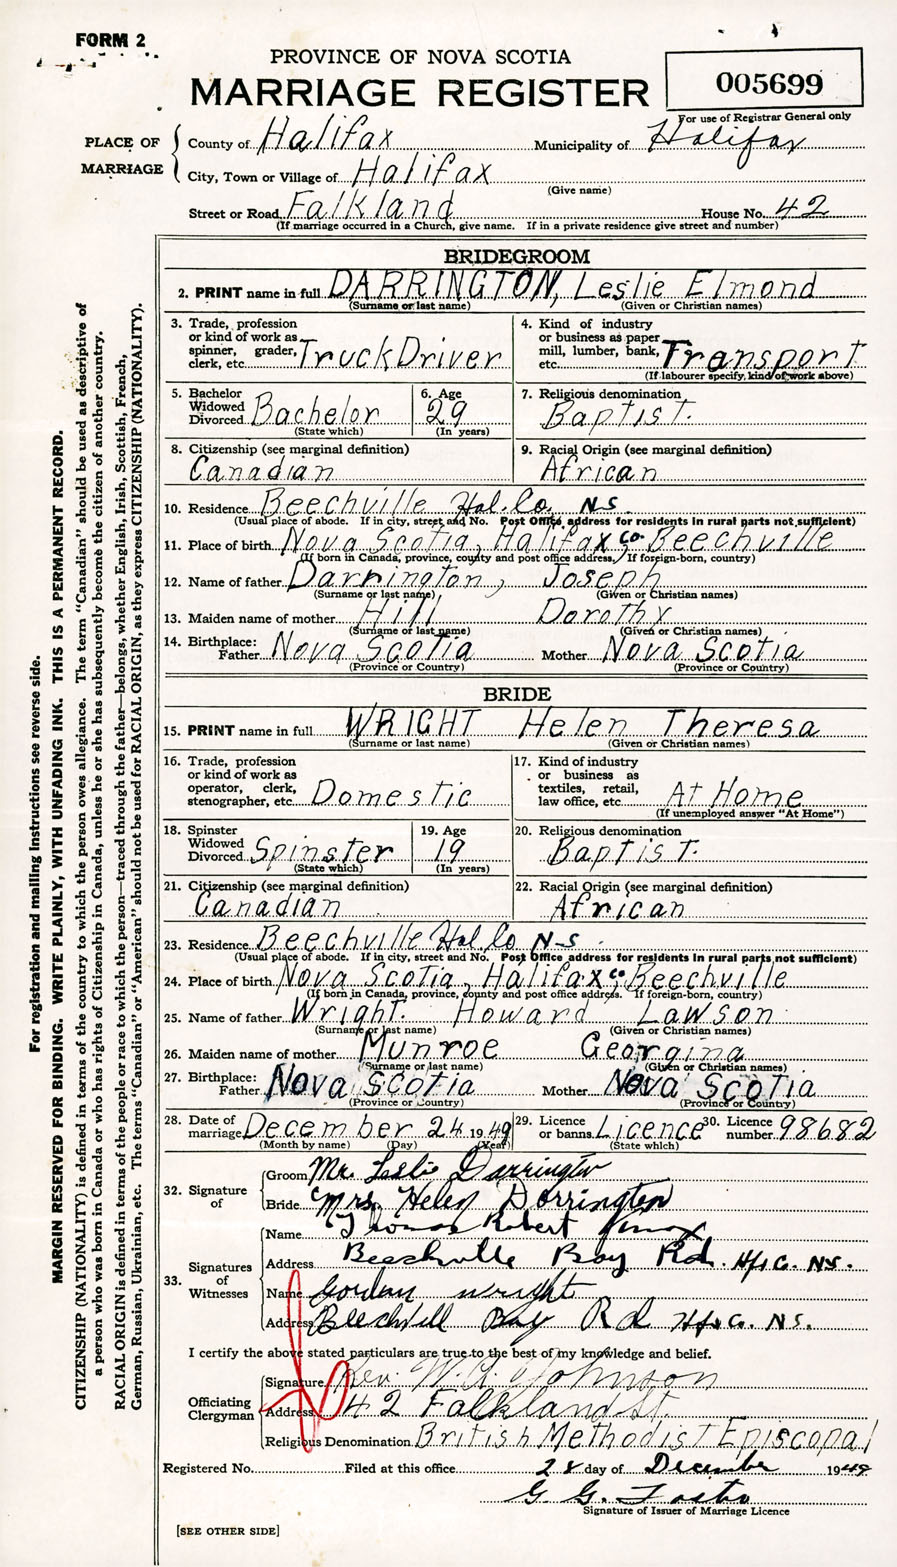 FORM 2
PROVINCE OF NOVA SCOTIA
MARRIAGE REGISTER
005699
For use of Registrar General only
PLACE OF MARRIAGE
County of Halifax Municipality of Halifax
City, Town or Village of Halifax
(Give name)
Street or Road Falkland House No. 42
(If marriage occurred in a Church, give name. If in a private residence give street and number)
BRIDEGROOM
2. PRINT name in full DARRINGTON, Leslie Elmond
(Surname or last name) (Given or Christian names)
3. Trade, profession or kind of work as spinner, grader, clerk, etc. Truck Driver
4. Kind of industry or business as paper mill, lumber, bank, etc. Transport
(If labourer specify kind of work above)
5. Bachelor Widowed Divorced Bachelor
(State which)
6. Age 29
(In years)
7. Religious denomination Baptist.
8. Citizenship (see marginal definition) Canadian
9. Racial Origin (see marginal definition) African
10. Residence Beechville Hal. Co. N.S.
(Usual place of abode. If in city, street and No. Post Office address for residents in rural parts not sufficient)
11. Place of birth Nova Scotia, Halifax Co. Beechville
(If born in Canada, province, county and post office address. If foreign-born, country)
12. Name of father Darrington, Joseph
(Surname or last name) (Given or Christian names)
13. Maiden name of mother Hill Dorothy
(Surname or last name) (Given or Christian names)
14. Birthplace: Father Nova Scotia Mother Nova Scotia
(Province or Country) (Province or Country)
BRIDE
15. PRINT name in full WRIGHT Helen Theresa
(Surname or last name) (Given or Christian names)
16. Trade, profession or kind of work as operator, clerk, stenographer, etc. Domestic
17. Kind of industry or business as textiles, retail, law office, etc. At Home
(If unemployed answer "At Home")
18. Spinster Widowed Divorced Spinster
(State which)
19. Age 19
(In years)
20. Religious denomination Baptist.
21. Citizenship (see marginal definition) Canadian
22. Racial Origin (see marginal definition) African
23. Residence Beechville Hal Co N-S
(Usual place of abode. If in city, street and No. Post Office address for residents in rural parts not sufficient)
24. Place of birth Nova Scotia, Halifax Co, Beechville
(If born in Canada, province, county and post office address. If foreign-born, country)
25. Name of father Wright. Howard Lawson
(Surname or last name) (Given or Christian names)
26. Maiden name of mother Munroe Georgina
(Surname or last name) (Given or Christian names)
27. Birthplace: Father Nova Scotia Mother Nova Scotia
(Province or Country) (Province or Country)
28. Date of marriage December 24 1949
(Month by name) (Day) (Year)
29. Licence or banns Licence
(State which)
30. Licence number 98682
32. Signature of
Groom Mr. Leslie Darrington
Bride Mrs. Helen Darrington
33. Signatures of Witnesses
Name Thomas Robert
Address Beechville Bay Rd. Hfx C. N.S.
Name Gordan Wright
Address Beechvill Bay Rd Hfx Co. N.S.
I certify the above stated particulars are true to the best of my knowledge and belief.
Officiating Clergyman
Signature Rev. W. A. Johnson
Address 42 Falkland St.
Religious Denomination British Methodist Episcopal
Registered No. Filed at this office 28 day of December 1949
G. G. Foster
Signature of Issuer of Marriage Licence
[SEE OTHER SIDE]
For registration and mailing instructions see reverse side.
MARGIN RESERVED FOR BINDING. WRITE PLAINLY, WITH UNFADING INK. THIS IS A PERMANENT RECORD.
CITIZENSHIP (NATIONALITY) is defined in terms of the country to which the person owes allegiance. The term "Canadian" should be used as descriptive of
a person who was born in Canada or who has rights of Citizenship in Canada, unless he or she has subsequently become the citizen of another country.
RACIAL ORIGIN is defined in terms of the people or race to which the person—traced through the father—belongs, whether English, Irish, Scottish, French,
German, Russian, Ukrainian, etc. The terms "Canadian" or "American" should not be used for RACIAL ORIGIN, as they express CITIZENSHIP (NATIONALITY).